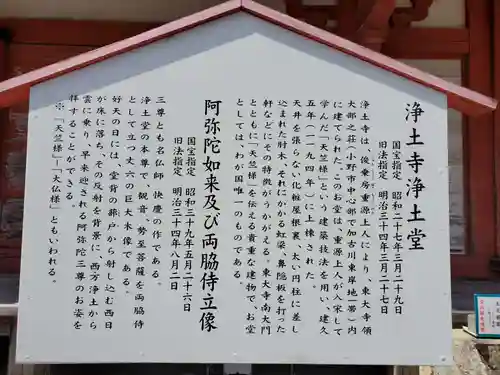 浄土寺浄土堂
国宝指定　昭和二十七年三月二十九日
旧法指定　明治三十四年三月二十七日
浄土寺は、後乗房重源上人により、東大寺領
大部之荘（小野市中心部で加古川東岸地一帯）内
に建てられた。このお堂は、重源上人が入宋して
学んだ「天竺様」という建築技法を用い、建久
五年（一一九四年）に上棟された。
天井を張らない化粧屋根裏、太い円柱に差し
込まれた肘木、それにかかる虹梁、鼻隠板を打った
軒などにその特徴がうかがえる。東大寺南大門
とともに「天竺様」を伝える貴重な建物で、お堂
としては、わが国唯一のものである
阿弥陀如来及び両脇侍立像
国宝指定　昭和三十九年五月二十六日
旧法指定　明治三十四年八月二日
三尊とも名仏師　快慶の作である。
浄土堂の本尊で、観音、勢至菩薩を両脇侍
として立つ丈六の巨大木像である。
好天の日には、堂背の蔀戸から射し込む西日
が床に落ち、その反射を背景に、西方浄土から
雲に乗り、早来迎される阿弥陀三尊のお姿を
拝することができる。
※「天竺様」は「大仏様」ともいわれる。